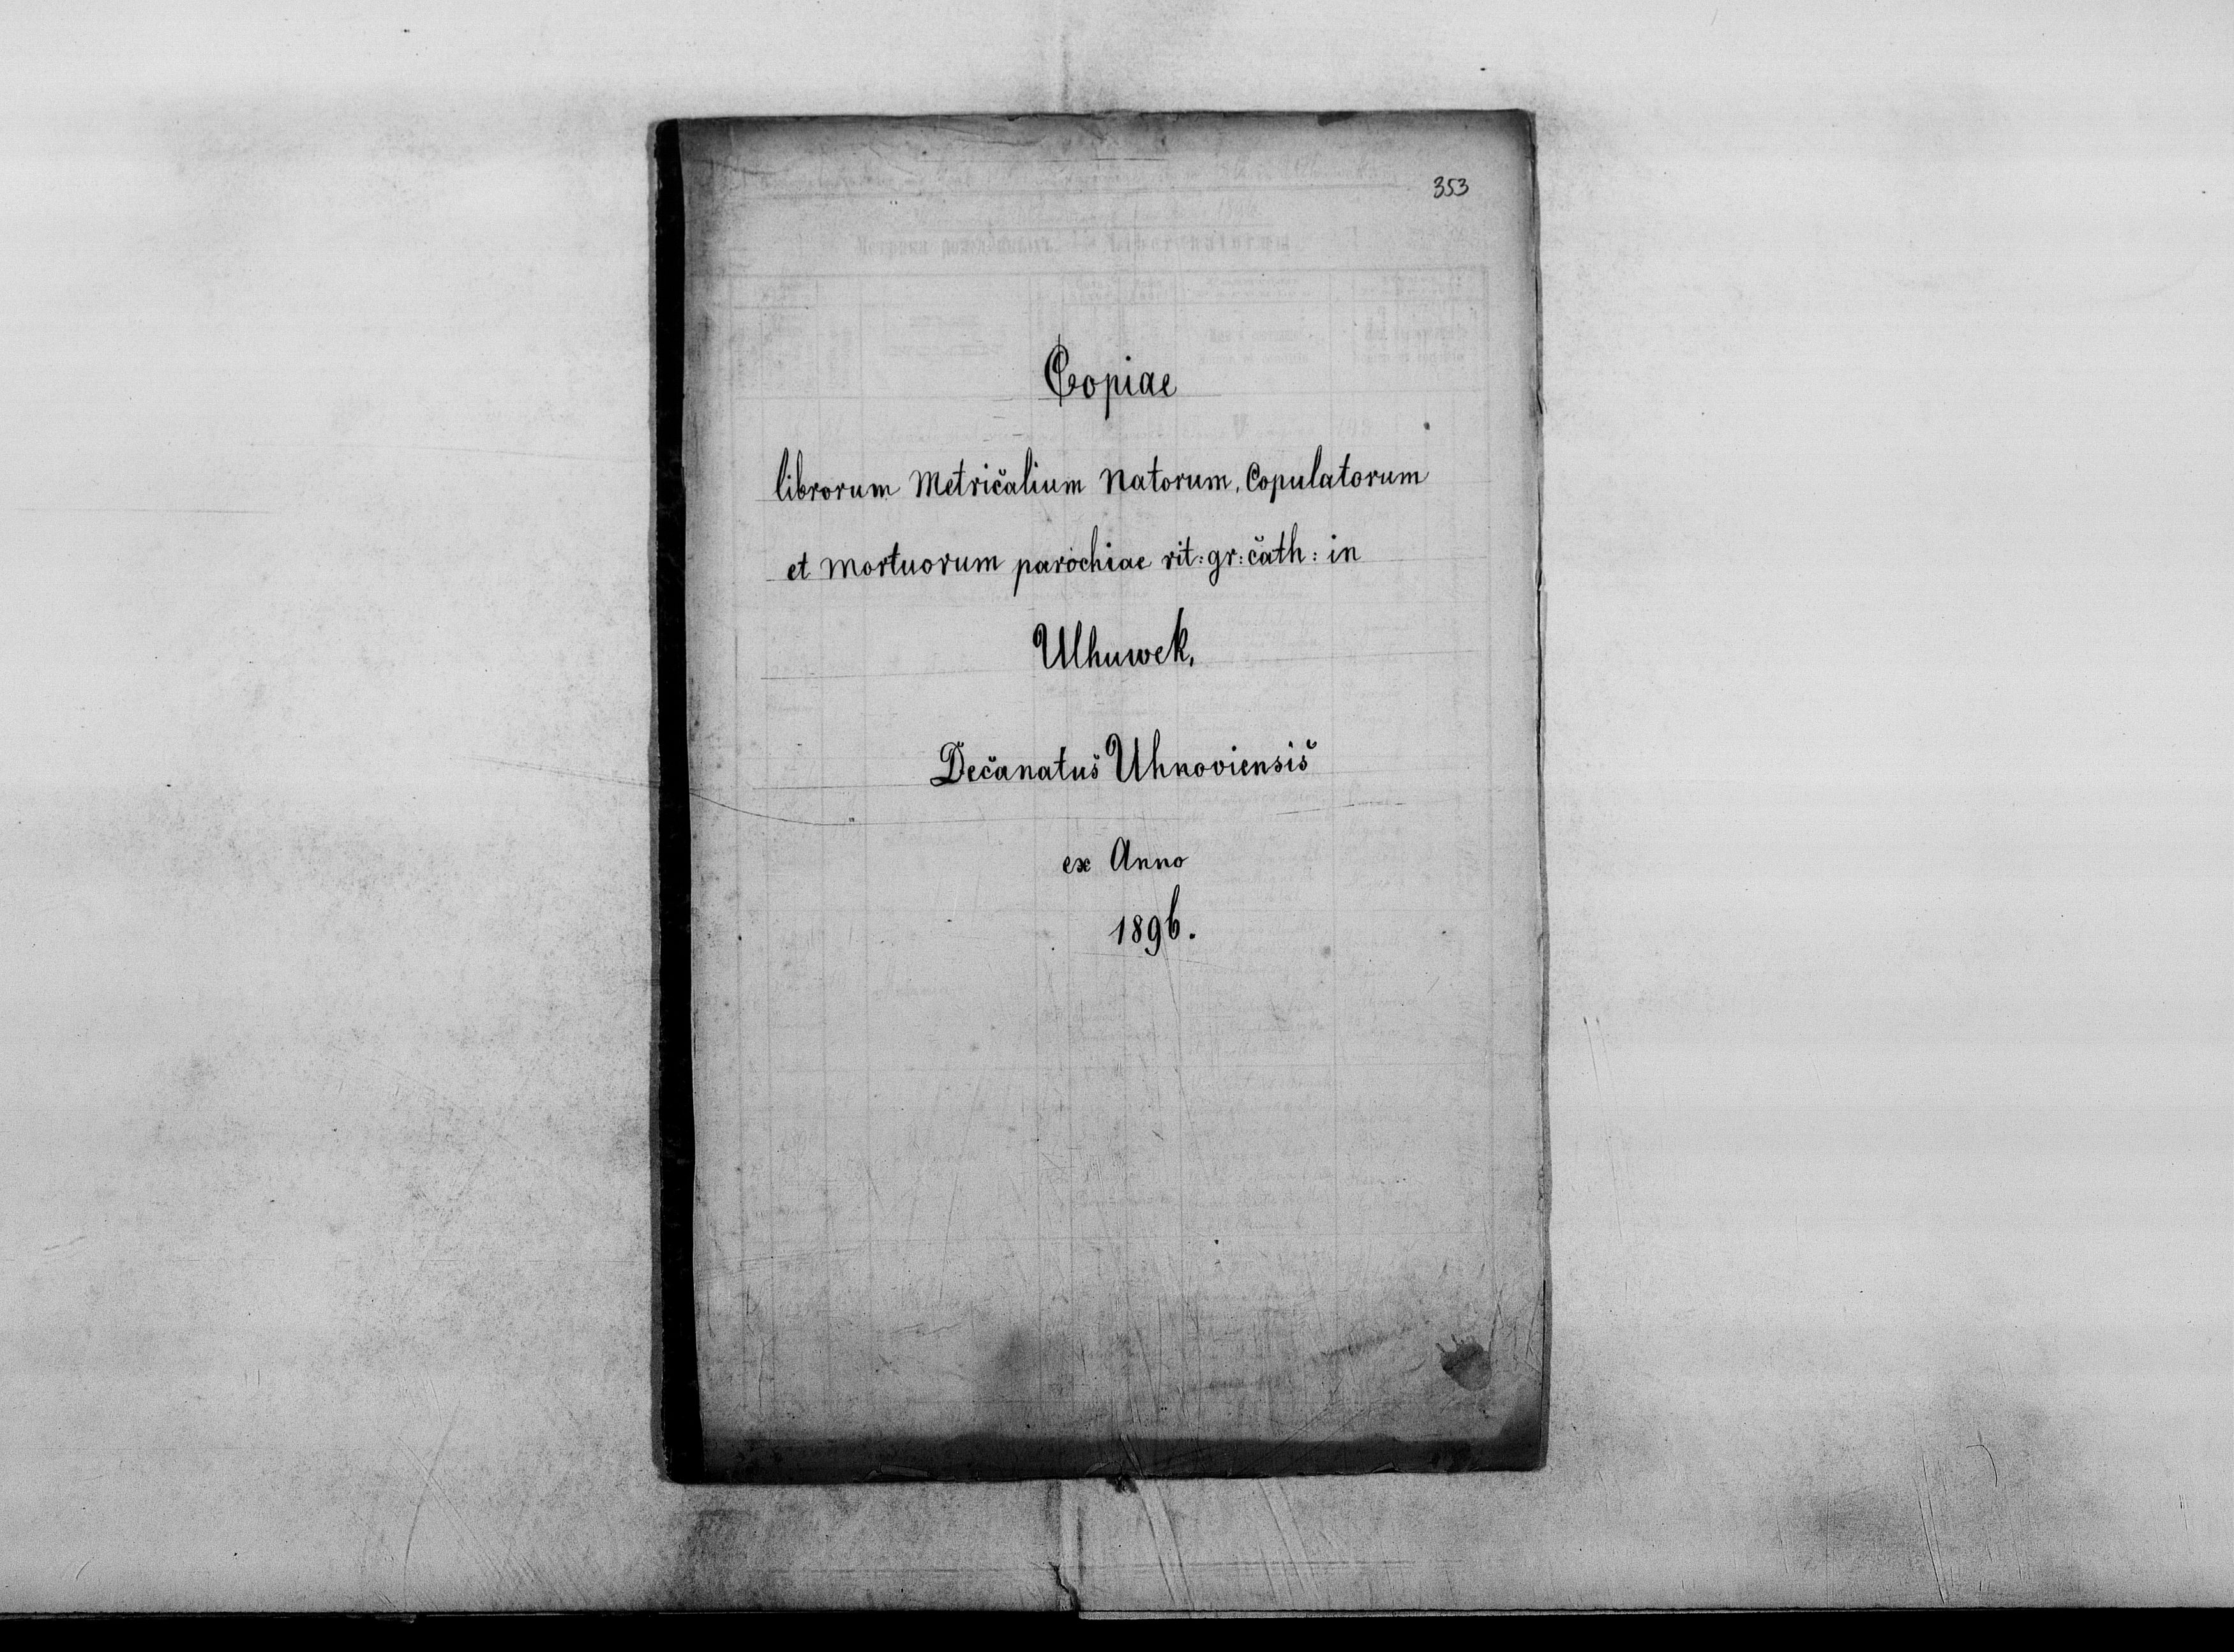 353
Copiae
librorum Metričalium Natorum, Copulatorum
et Mortuorum parochiae rit: gr: čath: in
Ulhuwek,
Dečanatuš Uhnoviensiš
ex Anno
1896.